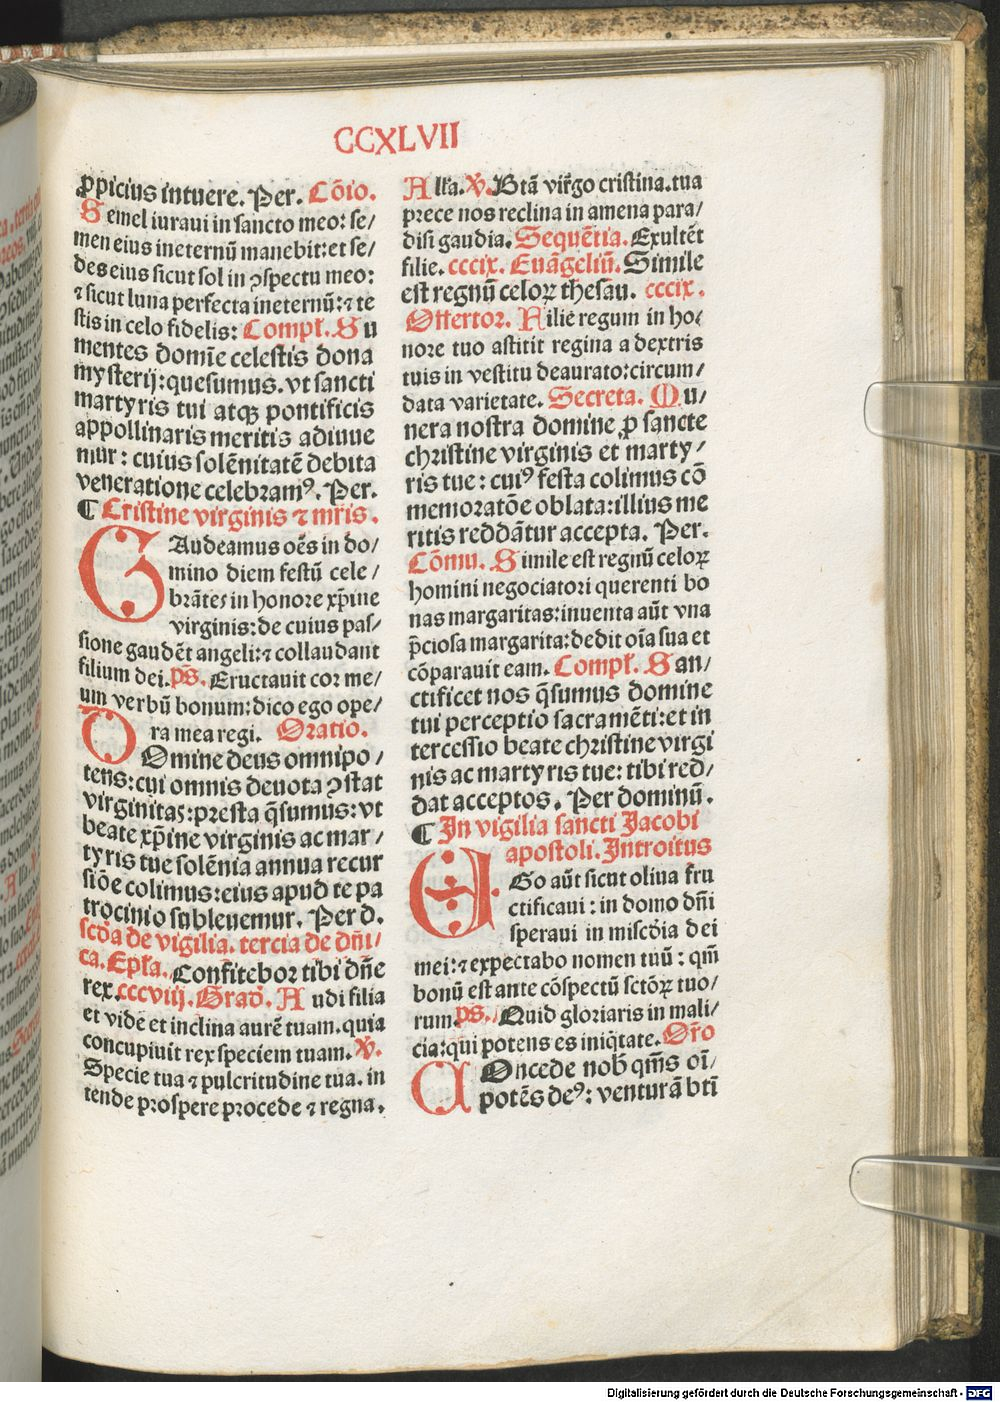 CCXLVII
ꝓpicius intuere. Per. Cõio.
Semel iuraui in sancto meo: se/
men eius ineternũ manebit: et se/
des eius sicut sol in ꝯspectu meo:
⁊ sicut luna perfecta ineternũ: ⁊ te
stis in celo fidelis: Compl̃. Su
mentes domĩe celestis dona
mysterij: quesumus. vt sancti
martyris tui atqꝫ pontificis
appollinaris meritis adiuue
mur: cuius solẽnitatẽ debita
veneratione celebramꝰ. Per.
¶ Cristine virginis ⁊ mr̃is.
GAudeamus oẽs in do/
mino diem festũ cele/
brãtes in honore xp̃ine
virginis: de cuius pas/
sione gaudẽt angeli: ⁊ collaudant
filium dei. p̃s. Eructauit coꝛ me/
um verbũ bonum: dico ego ope/
ra mea regi. Oratio.
DOmine deus omnipo/
tens: cui omnis deuota ꝯstat
virginitas: presta q̃sumus: vt
beate xp̃ine virginis ac mar/
tyris tue solẽnia annua recur
siõe colimus: eius apud te pa
trocinio subleuemur. Per d.
sc̃da de vigilia. tercia de dñi/
ca. Ep̃la. Confitebor tibi dñe
rex. cccviij. Grad̃. Audi filia
et vide et inclina aurẽ tuam. quia
concupiuit rex speciem tuam. ℣.
Specie tua ⁊ pulcritudine tua. in
tende prospere procede ⁊ regna.
All̃a. ℣. Btã vir̃go cristina. tua
prece nos reclina in amena para/
disi gaudia. Sequẽtia. Exultẽt
filie. cccix. Euãgeliũ. Simile
est regnũ celoꝝ thesau. cccix.
Offertor. Filie regum in ho/
nore tuo astitit regina a dextris
tuis in vestitu deaurato: circum/
data varietate. Secreta. Mu/
nera nostra domine ꝓ sancte
christine virginis et marty/
ris tue: cuiꝰ festa colimus cõ
memoratõe oblata: illius me
ritis reddãtur accepta. Per.
Cõmu. Simile est regnũ celoꝝ
homini negociatori querenti bo
nas margaritas: inuenta aũt vna
p̃ciosa margarita: dedit oĩa sua et
cõparauit eam. Compl̃. San/
ctificet nos q̃sumus domine
tui perceptio sacramẽti: et in
tercessio beate christine virgi
nis ac martyris tue: tibi red/
dat acceptos. Per dominũ.
¶ In vigilia sancti Jacobi
apostoli. Introitus
EGo aũt sicut oliua fru
ctificaui: in domo dñi
speraui in misc̃dia dei
mei: ⁊ expectabo nomen tuũ: qm̃
bonũ est ante cõspectũ sctõꝝ tuo/
rum. p̃s. Quid gloriaris in mali/
cia: qui potens es iniq̃tate. Or̃o
COncede nob̃ qm̃s oĩ/
potẽs deꝰ: venturã bt̃i
Digitalisierung gefördert durch die Deutsche Forschungsgemeinschaft - DFG